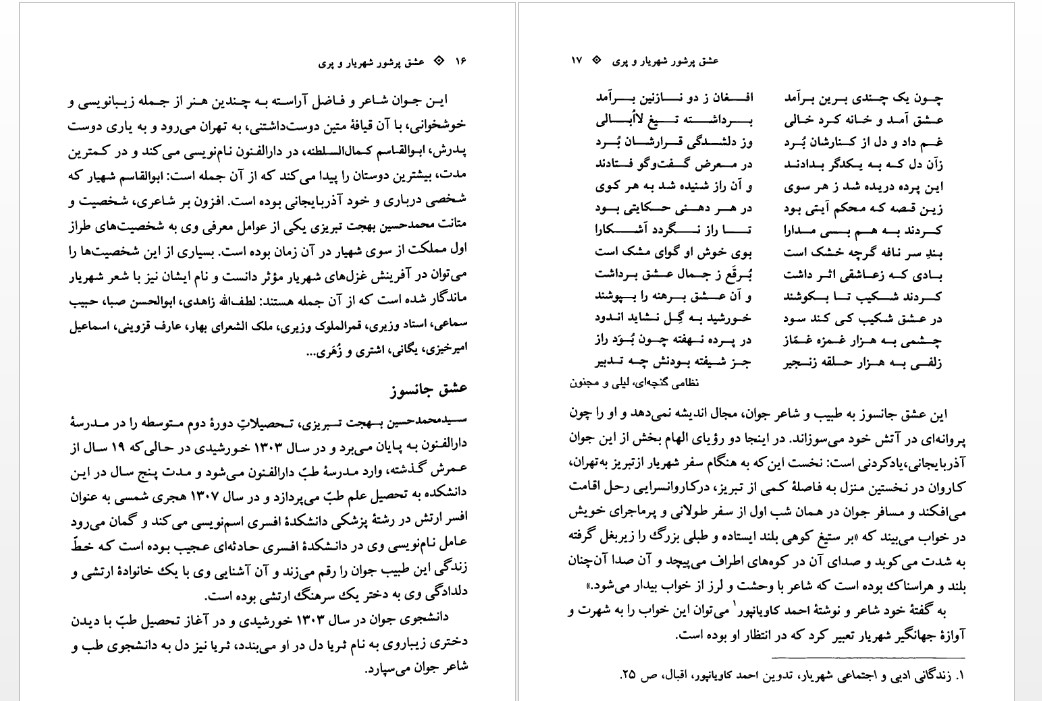 ۱۶ ※ عشق پرشور شهریار و پری
این جوان شاعر و فاضل آراسته به چندین هنر از جمله زیبانویسی و
خوشخوانی، با آن قیافهٔ متین دوست‌داشتنی، به تهران می‌رود و به یاری دوست
پدرش، ابوالقاسم کمال‌السلطنه، در دارالفنون نام‌نویسی می‌کند و در کمترین
مدت، بیشترین دوستان را پیدا می‌کند که از آن جمله است: ابوالقاسم شهیار که
شخصی درباری و خود آذربایجانی بوده است. افزون بر شاعری، شخصیت و
متانت محمدحسین بهجت تبریزی یکی از عوامل معرفی وی به شخصیت‌های طراز
اول مملکت از سوی شهیار در آن زمان بوده است. بسیاری از این شخصیت‌ها را
می‌توان در آفرینش غزل‌های شهریار مؤثر دانست و نام ایشان نیز با شعر شهریار
ماندگار شده است که از آن جمله هستند: لطف‌الله زاهدی، ابوالحسن صبا، حبیب
سماعی، استاد وزیری، قمرالملوک وزیری، ملک الشعرای بهار، عارف قزوینی، اسماعیل
امیرخیزی، یگانی، اشتری و زُهَری...
عشق جانسوز
سیدمحمدحسین بهجت تبریزی، تحصیلاتِ دورهٔ دوم متوسطه را در مدرسهٔ
دارالفنون به پایان می‌برد و در سال ۱۳۰۳ خورشیدی در حالی‌که ۱۹ سال از
عمرش گذشته، وارد مدرسهٔ طبّ دارالفنون می‌شود و مدت پنج سال در این
دانشکده به تحصیل علم طبّ می‌پردازد و در سال ۱۳۰۷ هجری شمسی به عنوان
افسر ارتش در رشتهٔ پزشکی دانشکدهٔ افسری اسم‌نویسی می‌کند و گمان می‌رود
عامل نام‌نویسی وی در دانشکدهٔ افسری حادثه‌ای عجیب بوده است که خطّ
زندگی این طبیب جوان را رقم می‌زند و آن آشنایی وی با یک خانوادهٔ ارتشی و
دلدادگی وی به دختر یک سرهنگ ارتشی بوده است.
دانشجوی جوان در سال ۱۳۰۳ خورشیدی و در آغاز تحصیل طبّ با دیدن
دختری زیباروی به نام ثریا دل در او می‌بندد، ثریا نیز دل به دانشجوی طب و
شاعر جوان می‌سپارد.
عشق پرشور شهریار و پری ※ ۱۷
چون یک چندی برین برآمد افغان ز دو نازنین برآمد
عشق آمد و خانه کرد خالی برداشته تیغ لاأبالی
غم داد و دل از کنارشان بُرد وز دلشدگی قرارشان بُرد
زآن دل که به یکدگر بدادند در معرض گفت‌وگو فتادند
این پرده دریده شد ز هر سوی و آن راز شنیده شد به هر کوی
زین قصه که محکم آیتی بود در هر دهنی حکایتی بود
کردند به هم بسی مدارا تا راز نگردد آشکارا
بندِ سر نافه گرچه خشک است بوی خوش او گوای مشک است
بادی که زعاشقی اثر داشت بُرقَع ز جمال عشق برداشت
کردند شکیب تا بکوشند و آن عشق برهنه را بپوشند
در عشق شکیب کی کند سود خورشید به گِل نشاید اندود
چشمی به هزار غمزه غمّاز در پرده نهفته چون بُوَد راز
زلفی به هزار حلقه زنجیر جز شیفته بودنش چه تدبیر
نظامی گنجه‌ای، لیلی و مجنون
این عشق جانسوز به طبیب و شاعر جوان، مجال اندیشه نمی‌دهد و او را چون
پروانه‌ای در آتش خود می‌سوزاند. در اینجا دو رؤیای الهام بخش از این جوان
آذربایجانی،یادکردنی است: نخست این‌که به هنگام سفر شهریار ازتبریز به‌تهران،
کاروان در نخستین منزل به فاصلهٔ کمی از تبریز، درکاروانسرایی رحل اقامت
می‌افکند و مسافر جوان در همان شب اول از سفر طولانی و پرماجرای خویش
در خواب می‌بیند که «بر ستیغ کوهی بلند ایستاده و طبلی بزرگ را زیربغل گرفته
به شدت می‌کوبد و صدای آن در کوه‌های اطراف می‌پیچد و آن صدا آن‌چنان
بلند و هراسناک بوده است که شاعر با وحشت و لرز از خواب بیدار می‌شود.»
به گفتهٔ خود شاعر و نوشتهٔ احمد کاویانپور۱ می‌توان این خواب را به شهرت و
آوازهٔ جهانگیر شهریار تعبیر کرد که در انتظار او بوده است.
۱. زندگانی ادبی و اجتماعی شهریار، تدوین احمد کاویانپور، اقبال، ص ۲۵.